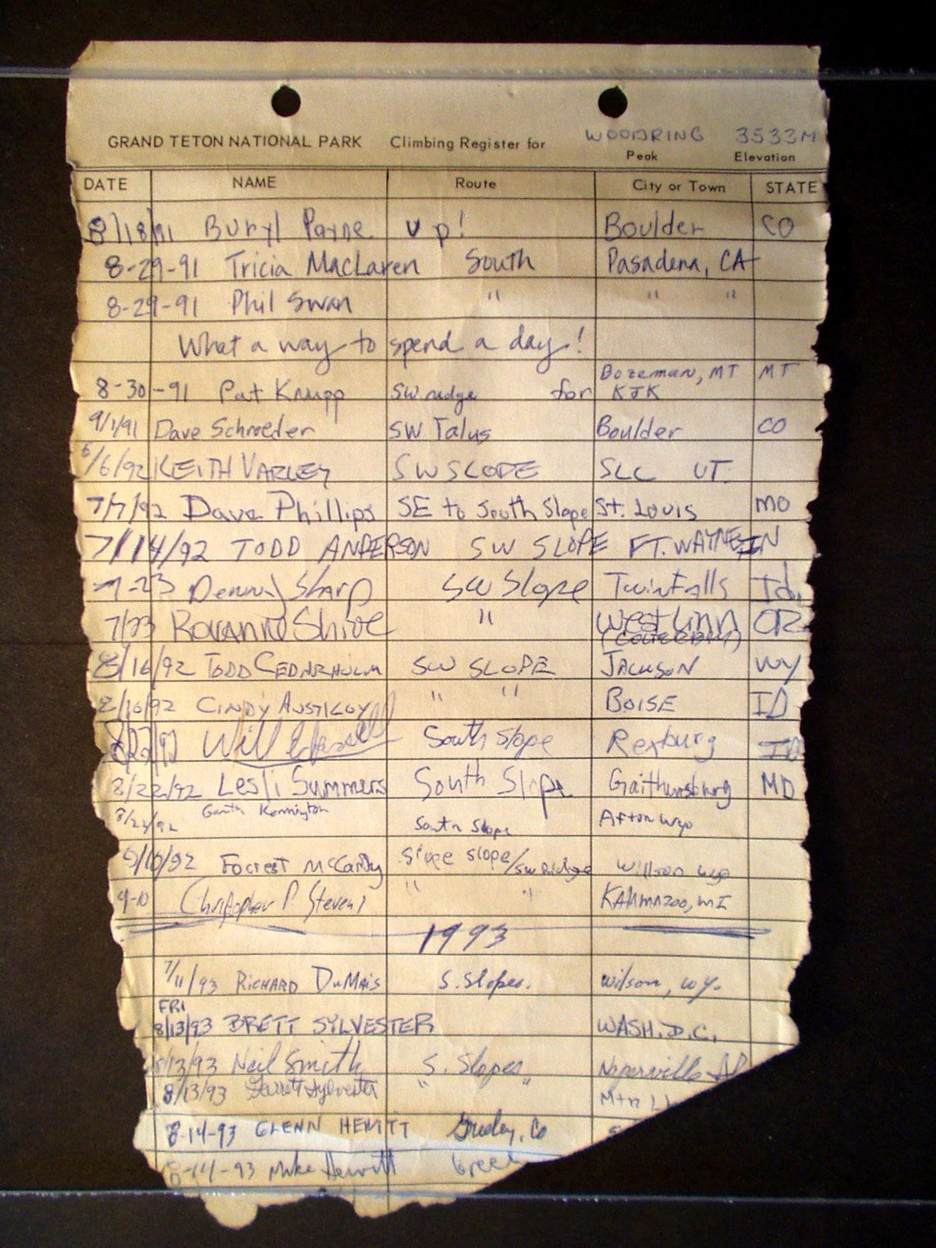 GRAND TETON NATIONAL PARK Climbing Register for WOODRING 3533M
Peak Elevation
DATE NAME Route City or Town STATE
8/18/91 Buryl Payne up! Boulder CO
8-29-91 Tricia MacLaren South Pasadena, CA
8-29-91 Phil Swan " " "
What a way to spend a day!
8-30-91 Pat Knupp SW ridge for Bozeman, MT MT
KJK
9/1/91 Dave Schroeder SW Talus Boulder CO
6/6/92 KEITH VARLEY SW SLOPE SLC UT.
7/7/92 Dave Phillips SE to South Slope St. Louis MO
7/14/92 TODD ANDERSON SW SLOPE FT. WAYNE IN
7-23 Denny Sharp SW Slope Twin Falls Id.
7/23 Roxanne " West Linn OR
8/16/92 TODD CEDARHOLM SW SLOPE JACKSON WY
8/16/92 CINDY " " BOISE ID
Will South Slope Rexburg ID
8/22/92 Lesli Summers South Slope Gaithersburg MD
8/22/92 Garth Kennington South Slope Afton Wyo
9/10/92 Forrest McCarthy slope/SW Ridge Wilson wyo
9-10 Christopher P Stevens " " KAHMAZOO, MI
1993
7/11/93 RICHARD DuMais S. Slopes. Wilson, Wy.
FRI
8/13/93 BRETT SYLVESTER WASH. D.C.
8/13/93 Neil Smith S. Slopes
8/13/93 Garrett Sylvester " " Mtn
8-14-93 GLENN HEWITT Greeley, Co
8-14-93 Mike Hewitt Gree